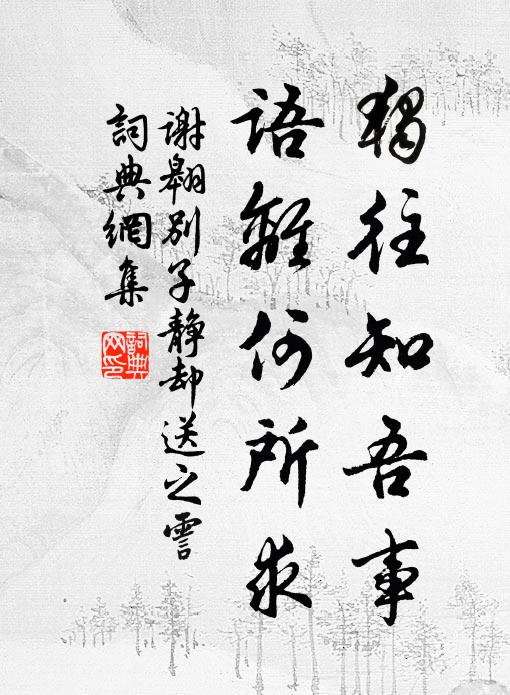 獨往知吾事
語離何所求
謝翱別子靜却送之霅
詞典網集
詞典
网印